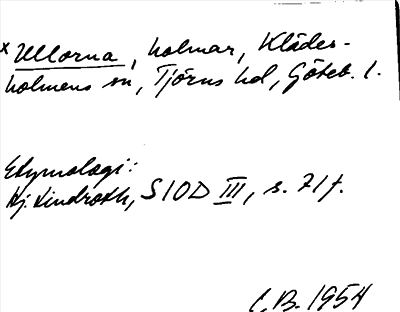 x Ullorna, holmar, Klädes-
holmens sn, Tjörns hd, Göteb. l.
Etymologi:
Hj. Lindroth, SIOD III, s. 71 f.
C.B. 1954